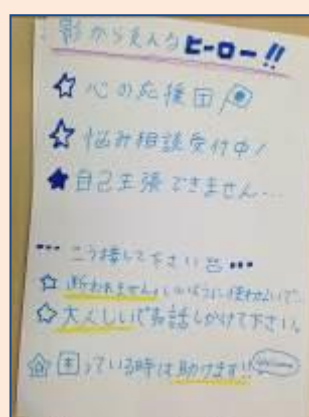 影から支えるヒーロー!!
☆心の応援団
☆悩み相談受付中!
★自己主張できません…
こう接して下さい
☆断われません。いいように使わないで…
☆大人しいけど話しかけて下さい。
困っている時は助けます!! Welcome